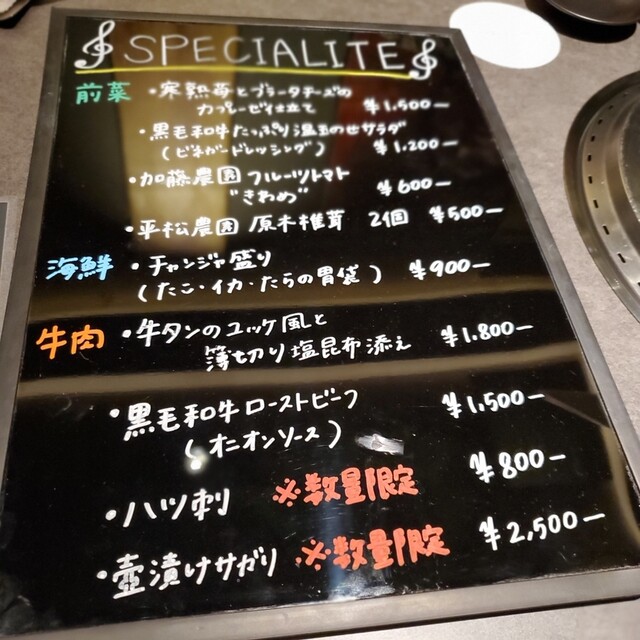 SPECIALITE
前菜 ・寒熟苺とブラータチーズの
カプレーゼ仕立て ¥1,500−
・黒毛和牛たっぷり温玉のせサラダ
(ビネガードレッシング) ¥1,200−
・加藤農園 フルーツトマト
"きわめ" ¥600−
・平松農園 原木椎茸 2個 ¥500−
海鮮 ・チャンジャ盛り
(たこ・イカ・たらの胃袋) ¥900−
牛肉 ・牛タンのユッケ風と
薄切り塩昆布添え ¥1.800−
・黒毛和牛ローストビーフ
(オニオンソース) ¥1,500−
・ハツ刺 ※数量限定 ¥800−
・壺漬けサガリ ※数量限定 ¥2,500−